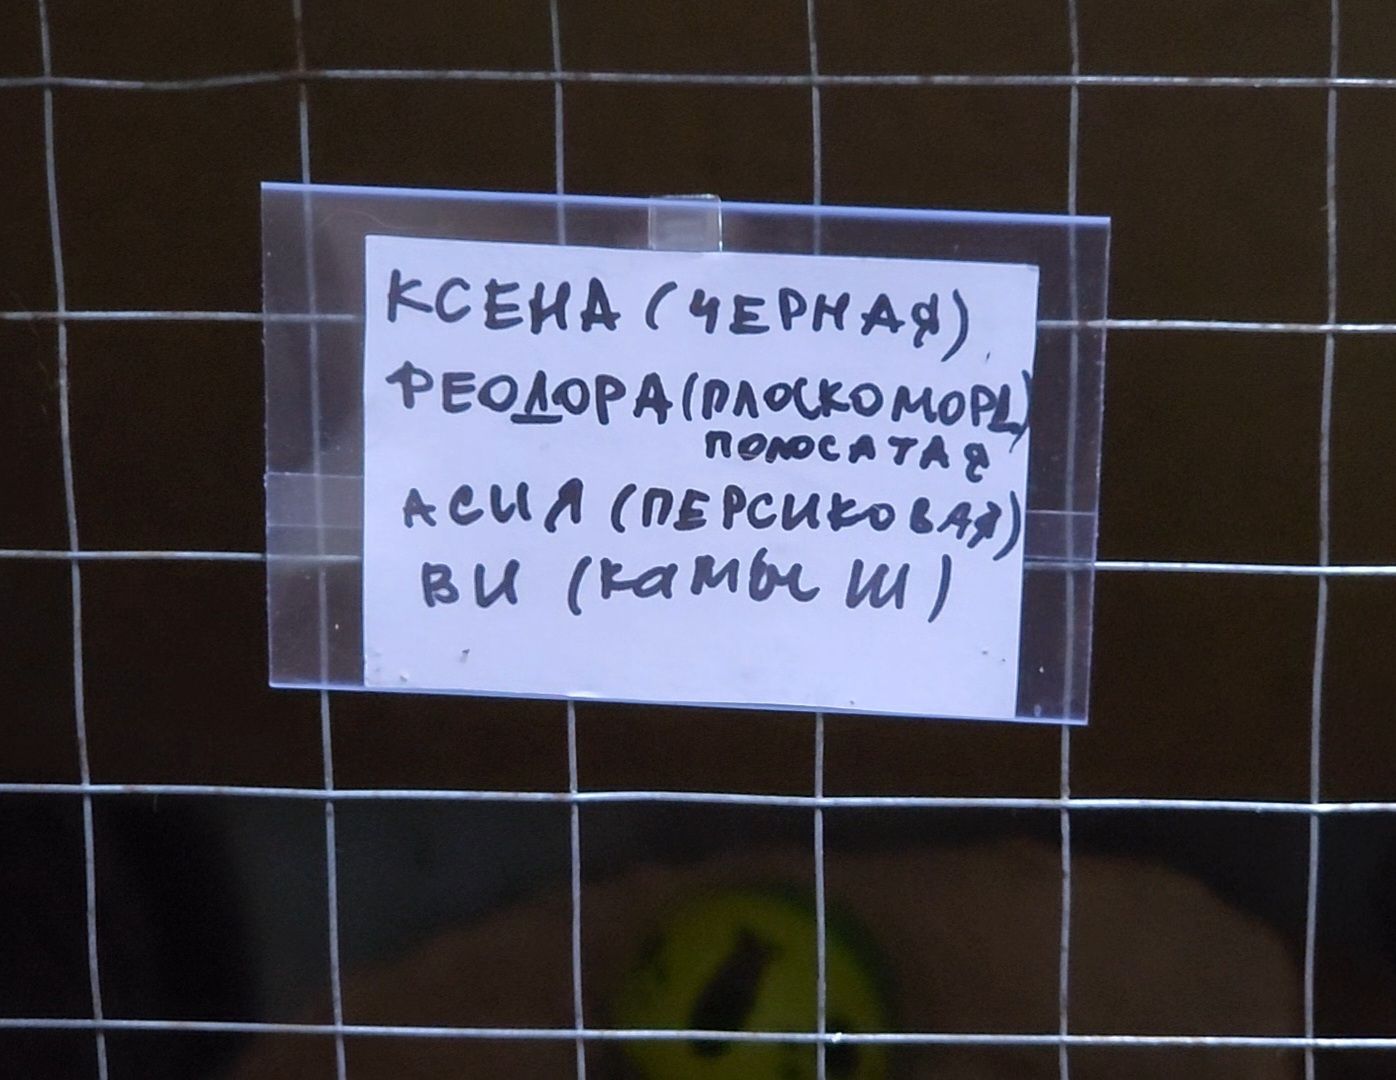 КСЕНА (ЧЕРНАЯ)
ФЕОДОРА (ПЛОСКОМОРД)
ПОЛОСАТАЯ
АСИЯ (ПЕРСИКОВАЯ)
ВИ (камыш)